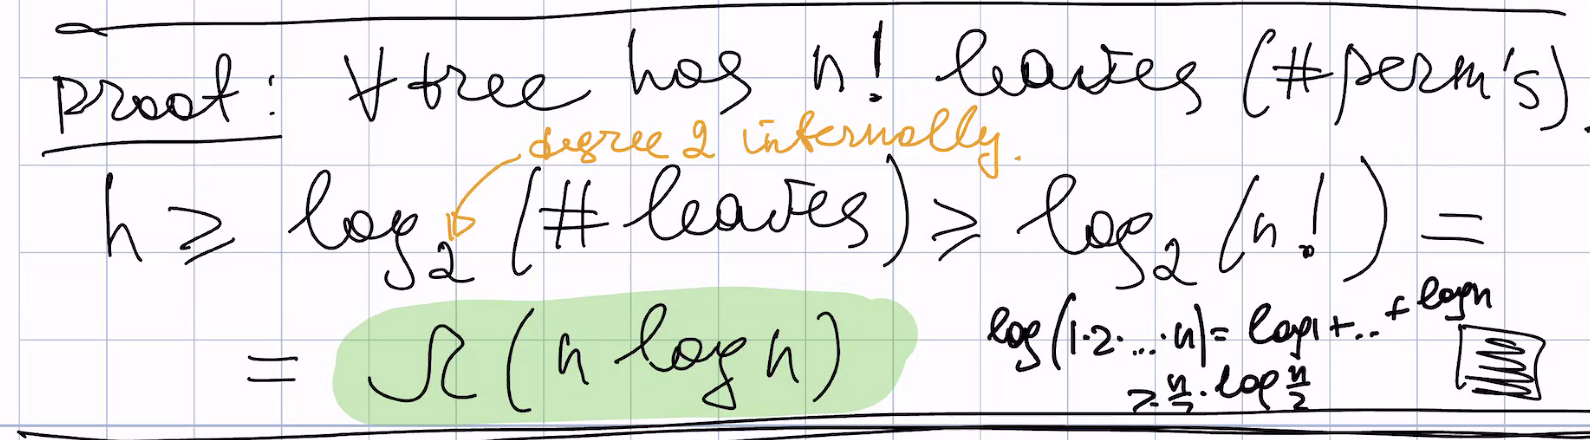 Proof: ∀ tree has n! leaves (#perm's).
degree 2 internally.
h ≥ log₂(# leaves) ≥ log₂(n!) =
= Ω(n log n)
log(1·2·...·n) = log1+..+ logn
≥ n/2 · log n/2